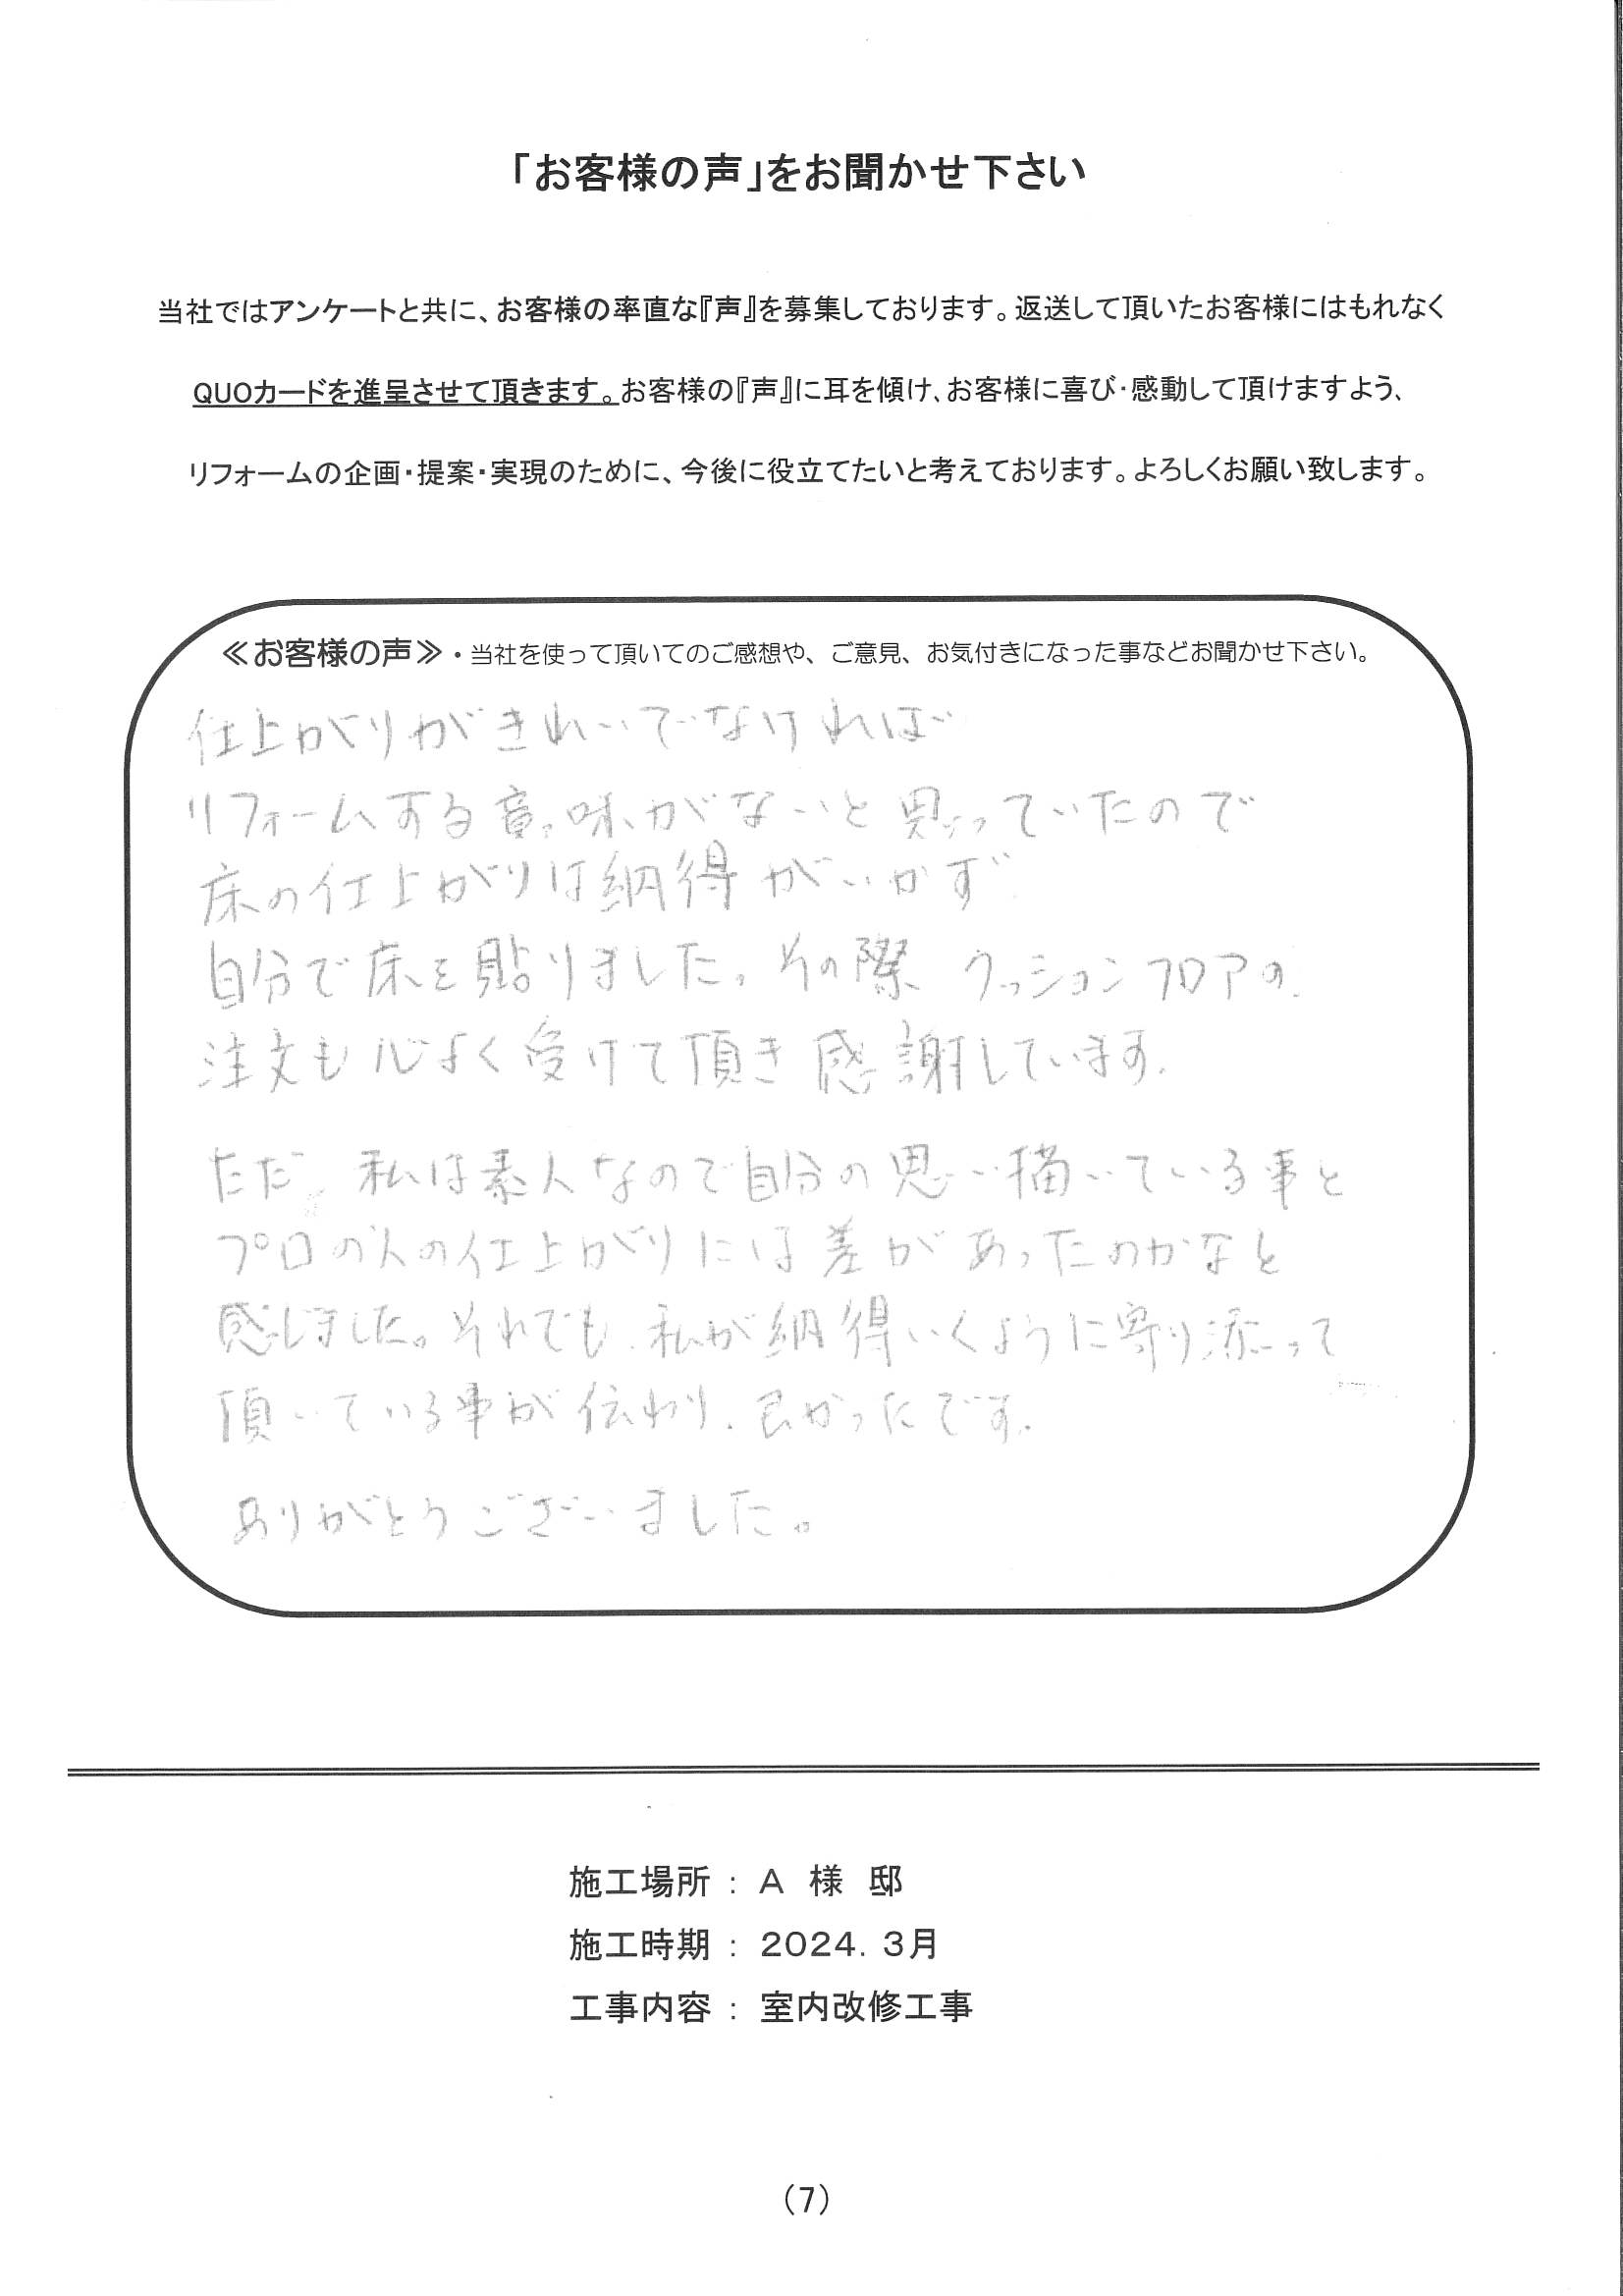 「お客様の声」をお聞かせ下さい
当社ではアンケートと共に、お客様の率直な『声』を募集しております。返送して頂いたお客様にはもれなく
QUOカードを進呈させて頂きます。お客様の『声』に耳を傾け、お客様に喜び・感動して頂けますよう、
リフォームの企画・提案・実現のために、今後に役立てたいと考えております。よろしくお願い致します。
≪お客様の声≫・当社を使って頂いてのご感想や、ご意見、お気付きになった事などお聞かせ下さい。
仕上がりがきれいでなければ
リフォームする意味がないと思っていたので
床の仕上がりは納得がいかず
自分で床を貼りました。その際 クッションフロアの
注文も心よく受けて頂き感謝しています。
ただ、私は素人なので自分の思い描いている事と
プロの人の仕上がりには差があったのかなと
感じました。それでも、私が納得いくように寄り添って
頂いている事が伝わり、良かったです。
ありがとうございました。
施工場所 : A 様 邸
施工時期 : 2024. 3月
工事内容 : 室内改修工事
(7)